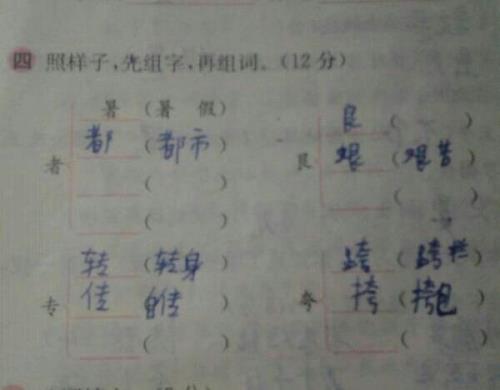 四 照样子,先组字,再组词。(12分)
暑 (暑 假)
都 (都市)
者
( )
( )
( )
艰 (艰苦)
艮
( )
转 (转身)
专
传 自传 )
( )
跨 (跨栏)
夸
挎 (挎包)
( )